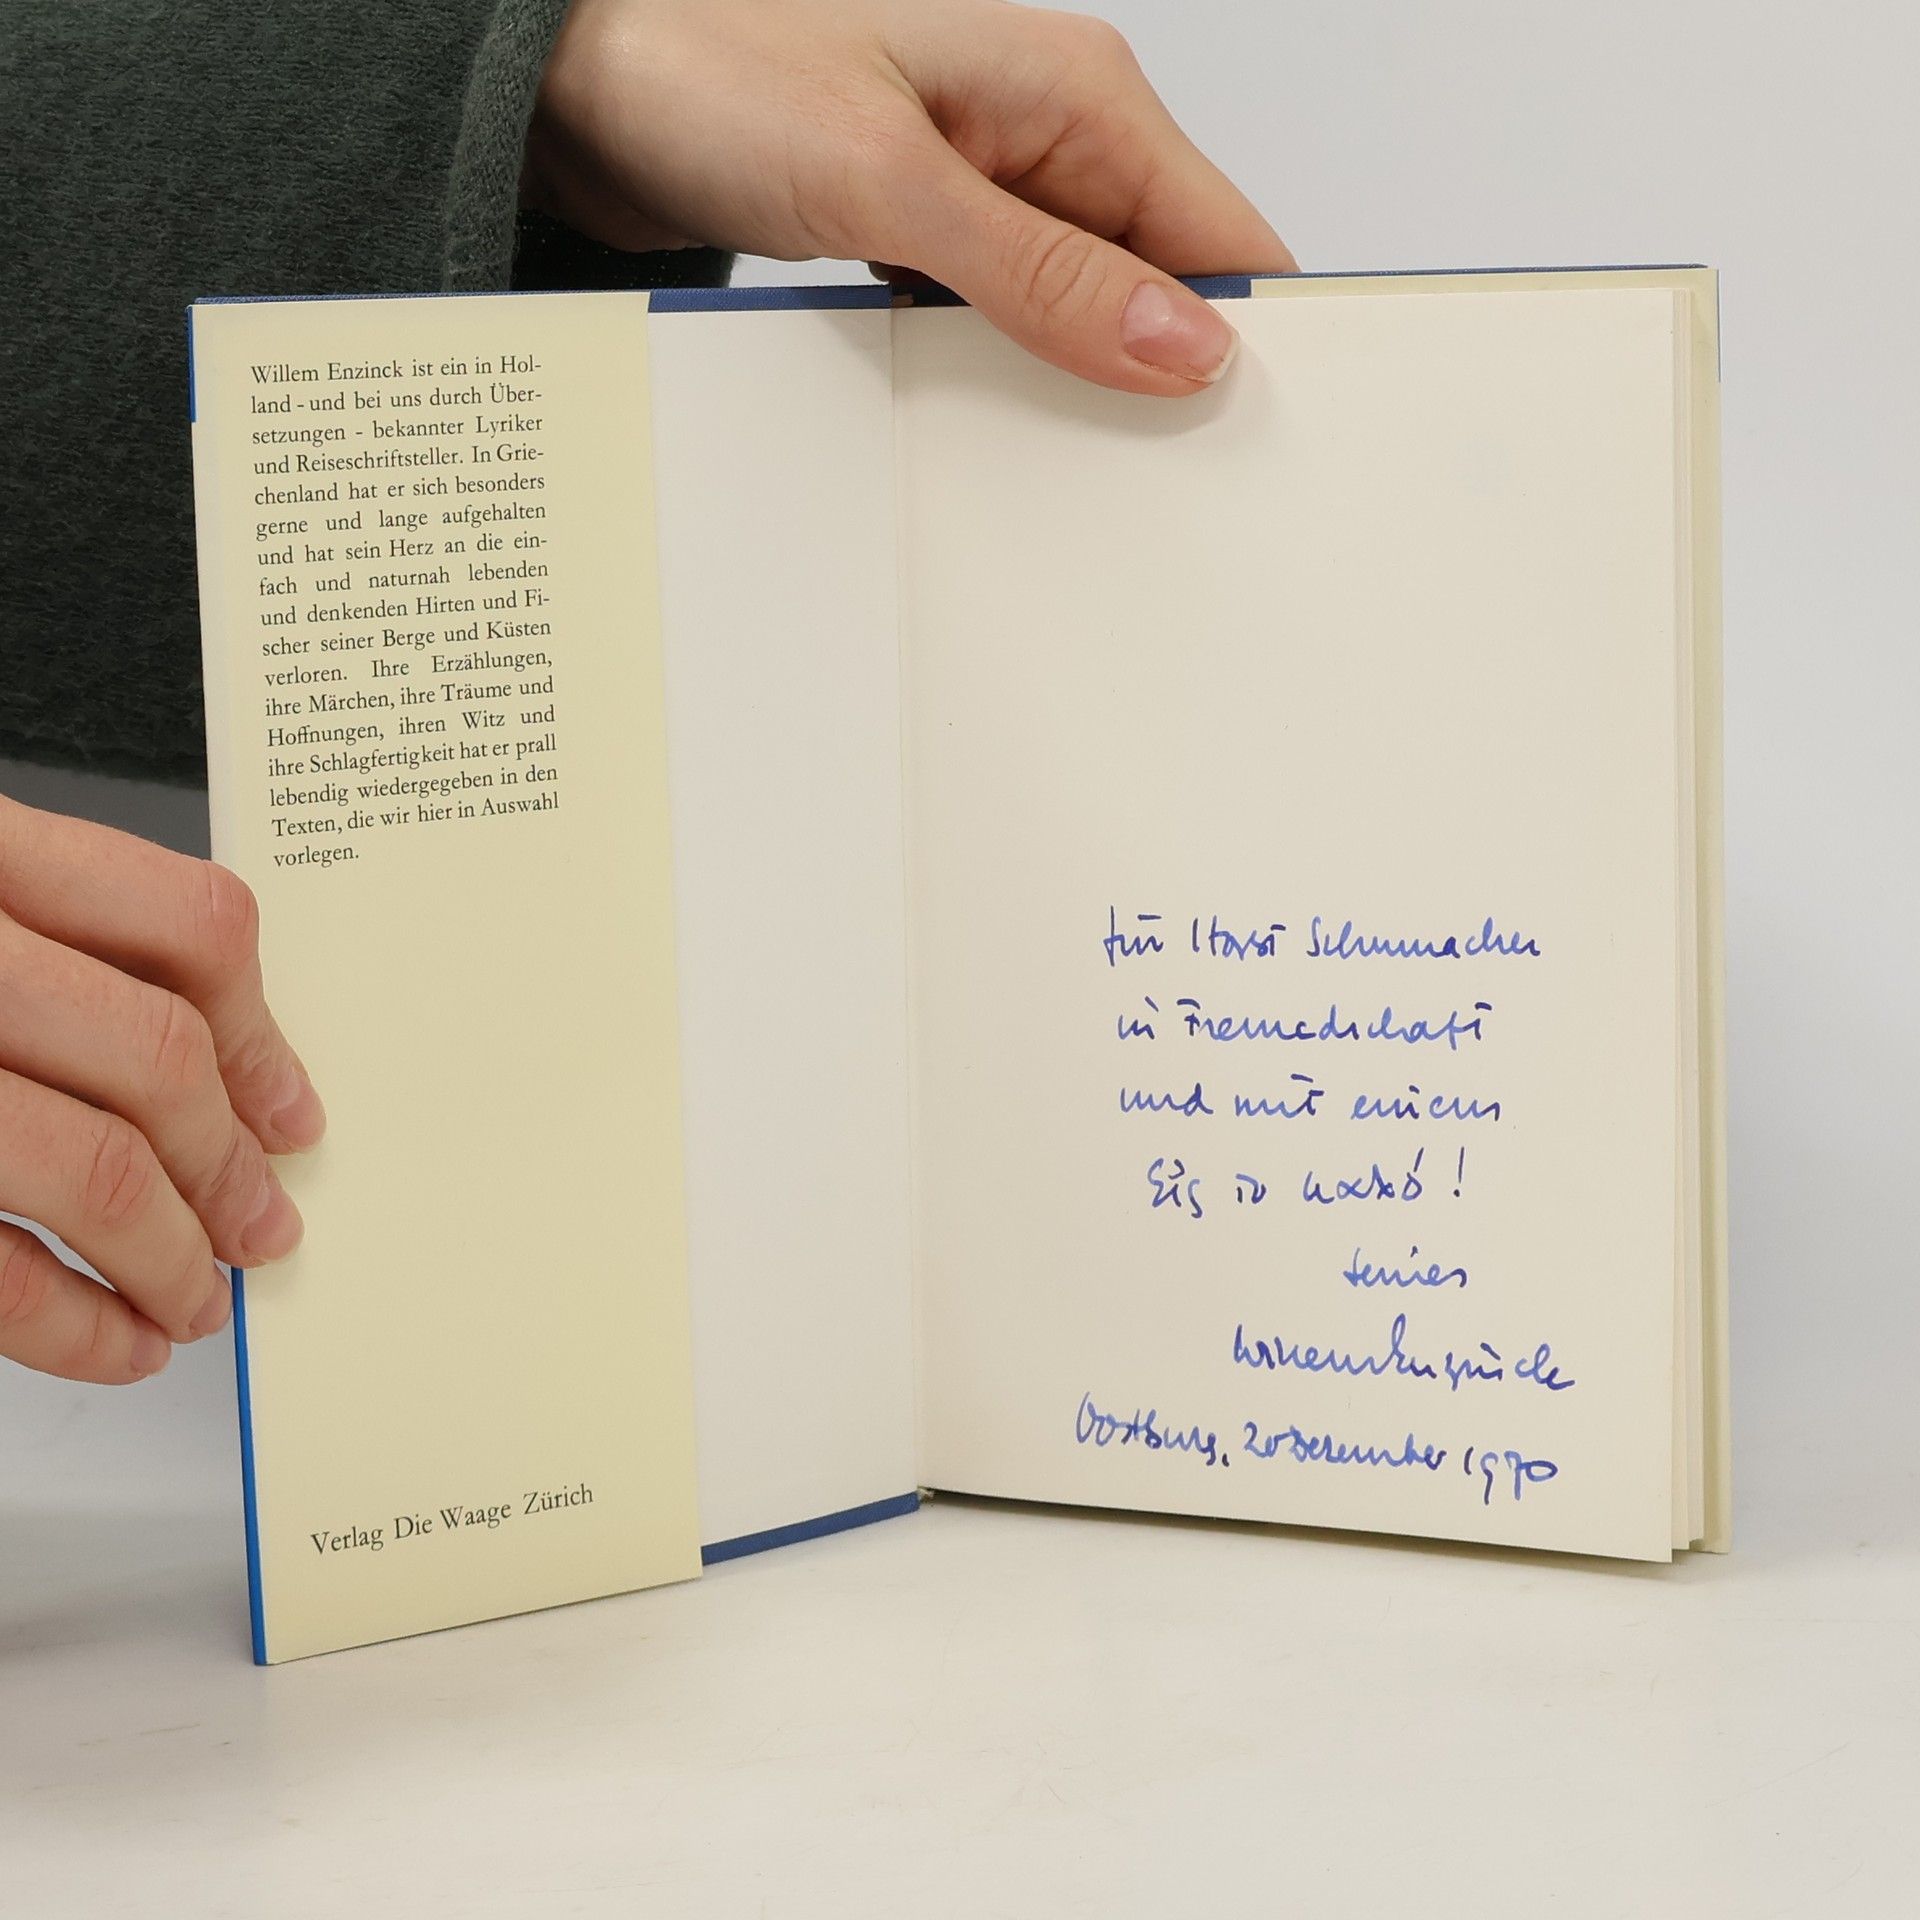 Willem Enzinck ist ein in Hol-
land - und bei uns durch Über-
setzungen - bekannter Lyriker
und Reiseschriftsteller. In Grie-
chenland hat er sich besonders
gerne und lange aufgehalten
und hat sein Herz an die ein-
fach und naturnah lebenden
und denkenden Hirten und Fi-
scher seiner Berge und Küsten
verloren. Ihre Erzählungen,
ihre Märchen, ihre Träume und
Hoffnungen, ihren Witz und
ihre Schlagfertigkeit hat er prall
lebendig wiedergegeben in den
Texten, die wir hier in Auswahl
vorlegen.
Verlag Die Waage Zürich
für Horst Schumacher
in Freundschaft
und mit einem
Εἰς τὸ καλό!
Willem Enzinck
Oostburg, 20 Dezember 1970